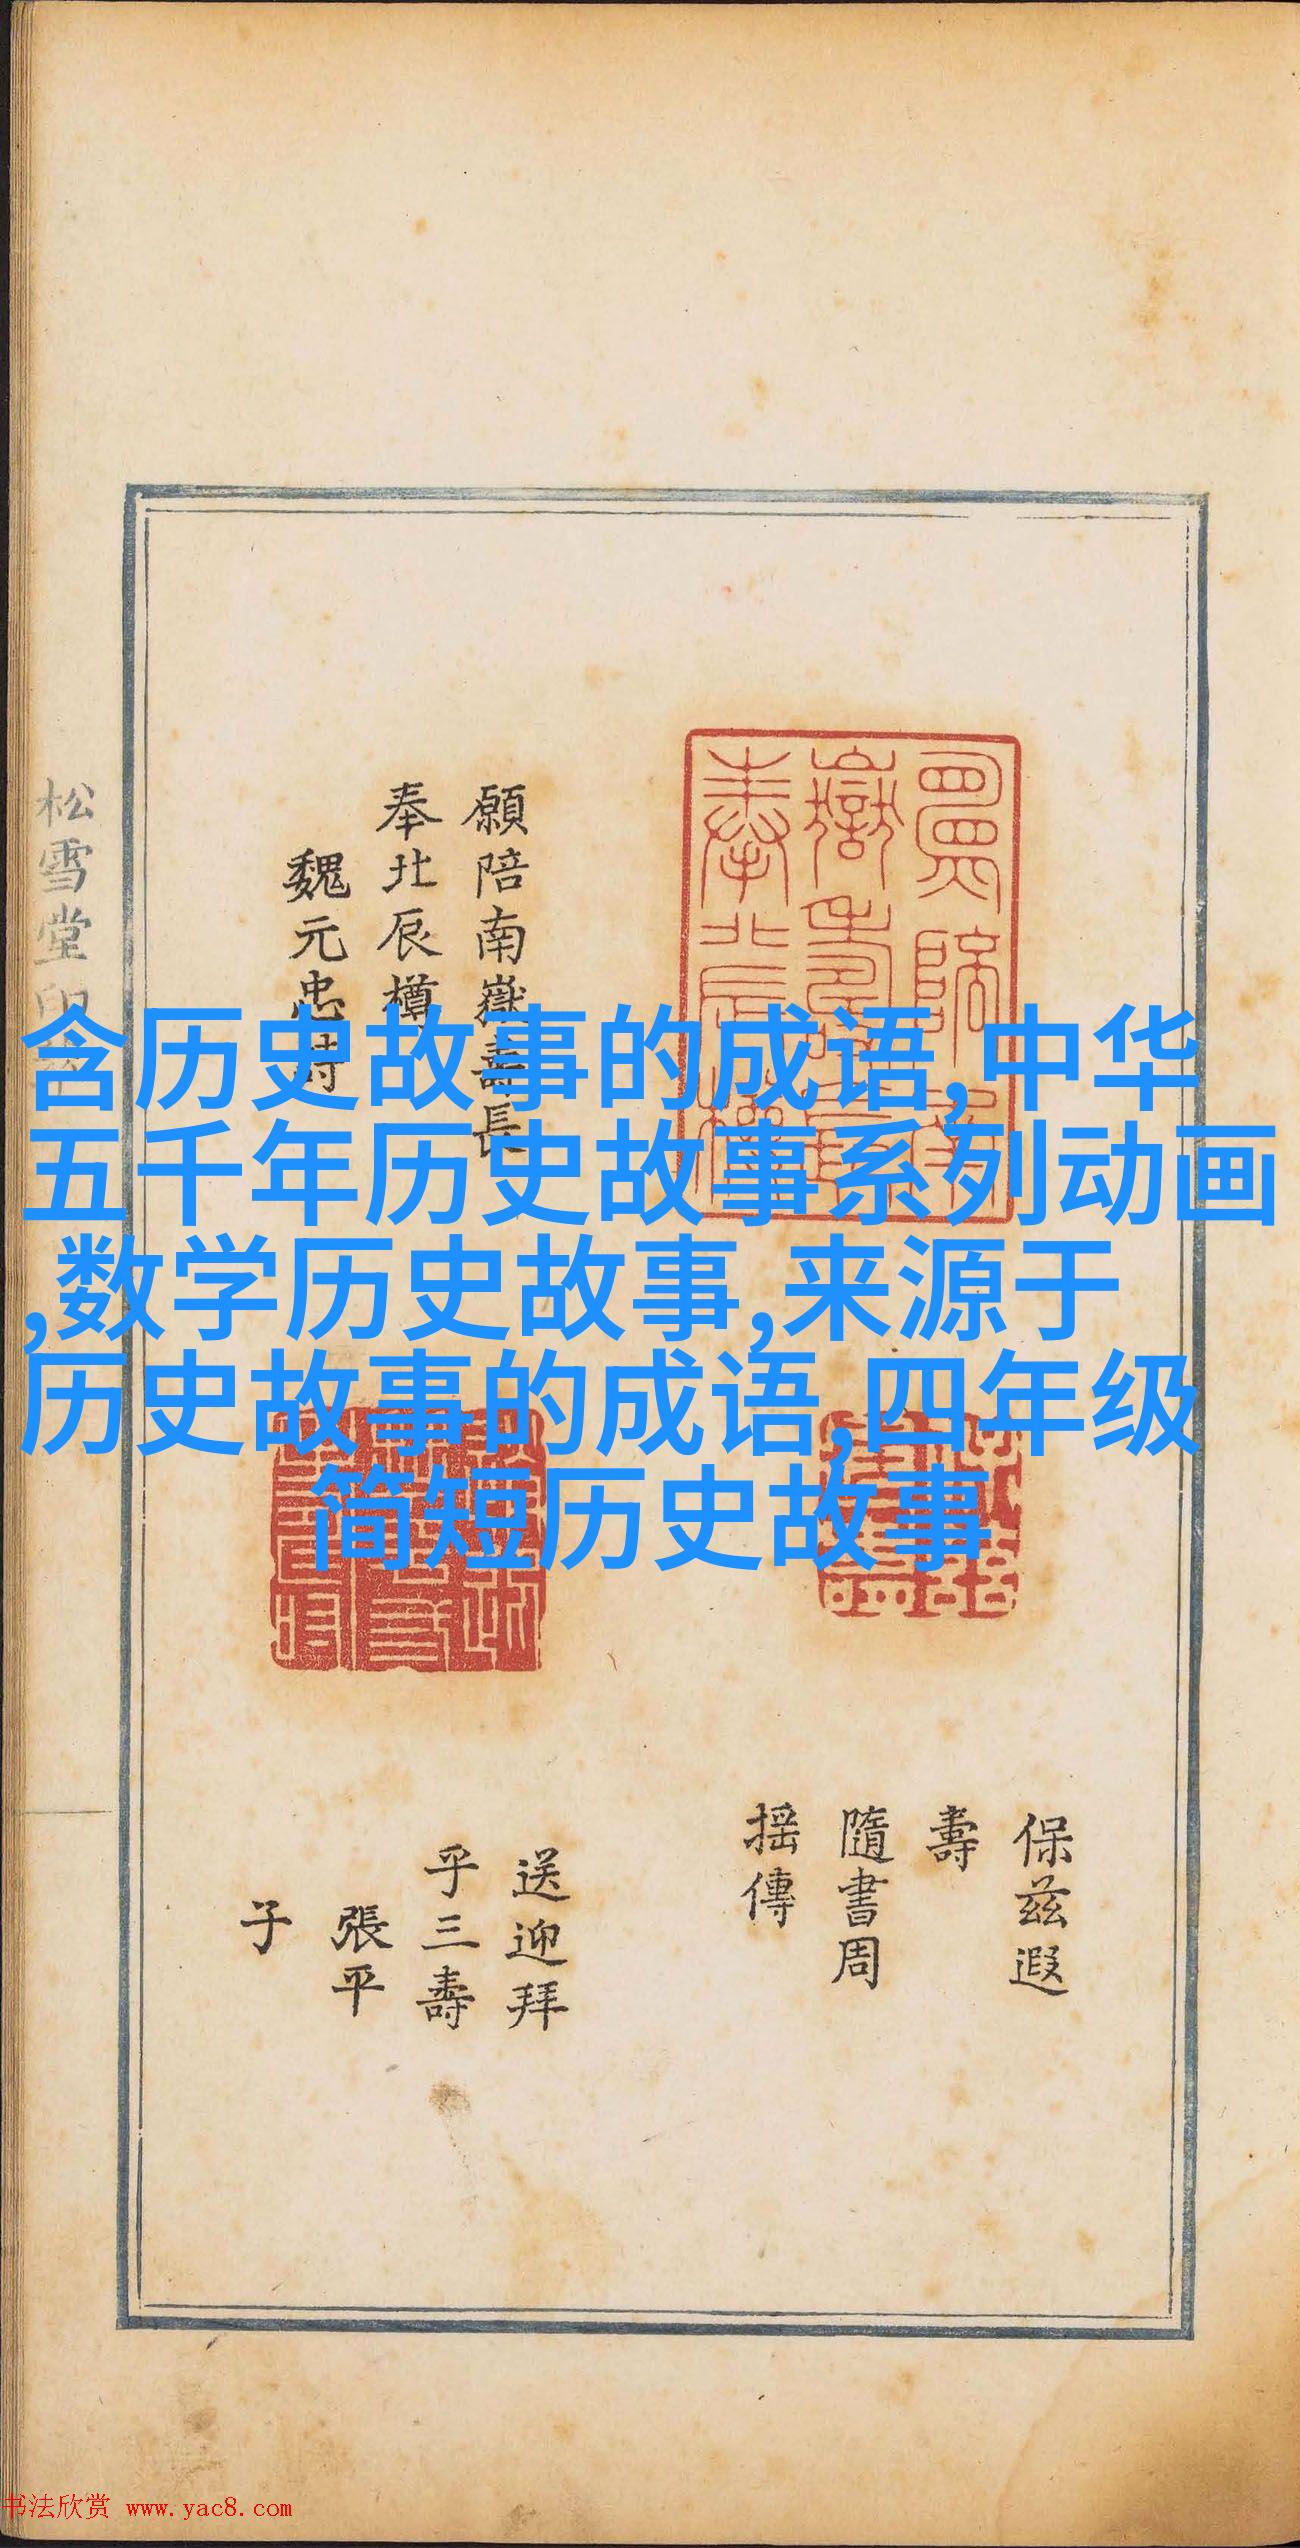 含历史故事的成语,中华
五千年历史故事系列动画
,数学历史故事,来源于
历史故事的成语,四年级
简短历史故事
願陪南嶽壽長
奉北辰樽
魏元忠詩
松雪堂印
保茲遐
壽
隨書周
搖傳
送迎拜
乎三壽
張平
子
书法欣赏 www.yac8.com